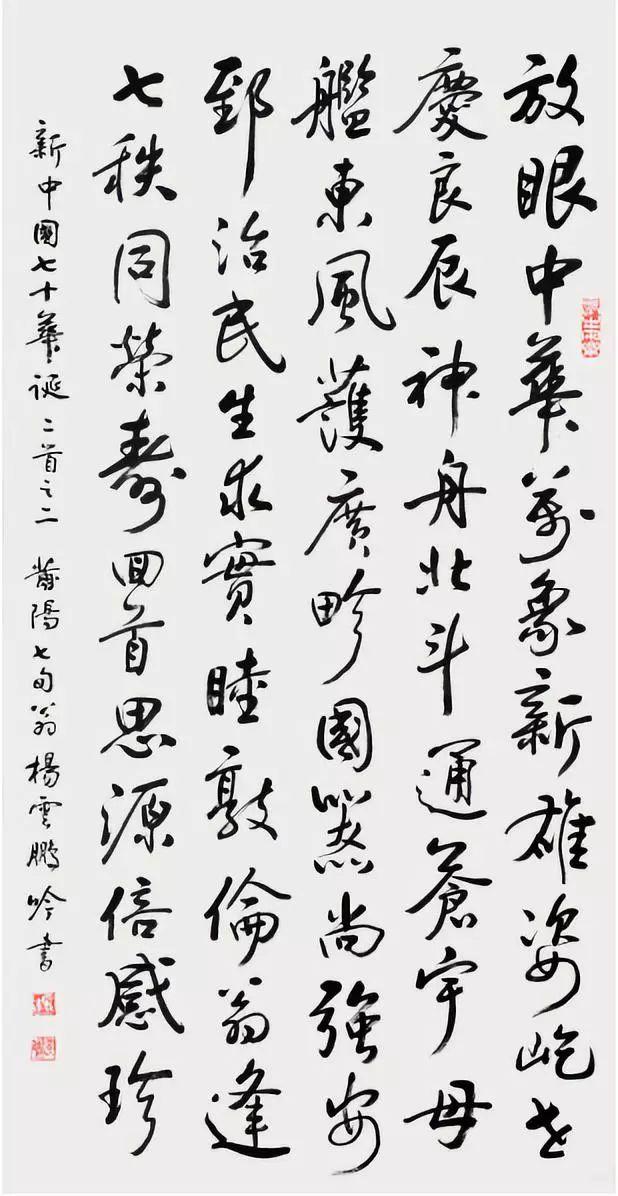 放眼中華萬象新雄姿屹世
慶良辰神舟北斗通蒼宇母
艦東風護廣畛國器尚強安
郅治民生求實睦敦倫翁逢
七秩同榮壽回首思源倍感珍
新中國七十華誕二首之二 莆陽七旬翁楊雲鵬吟書